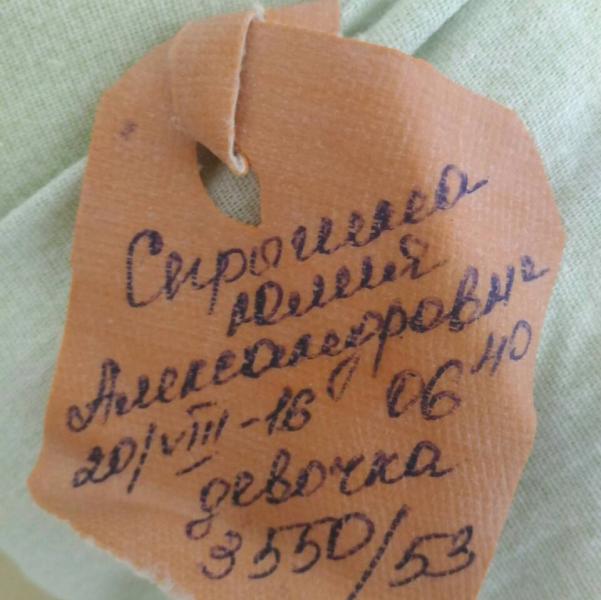 Сырошма
Юлия
Александровна
20/VIII-16 06 40
девочка
3550/53